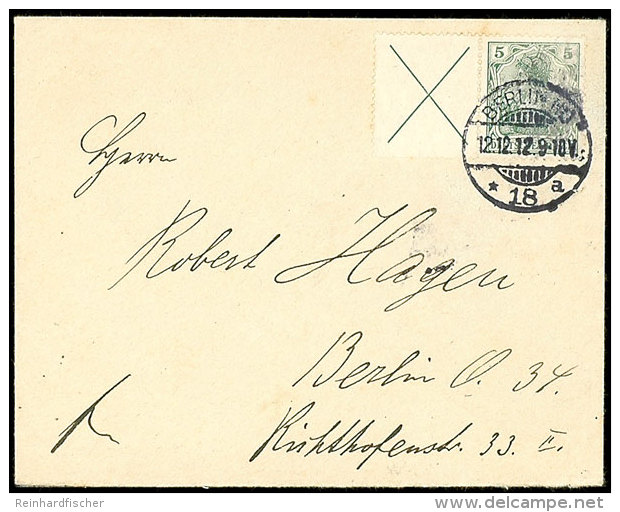 5 5
BERLIN
12.12.12.9-10V.
* 18 a
Herrn
Robert Hagen
Berlin O. 34.
Richthofenstr. 33. II.
Reinhardfischer
delcampe.net